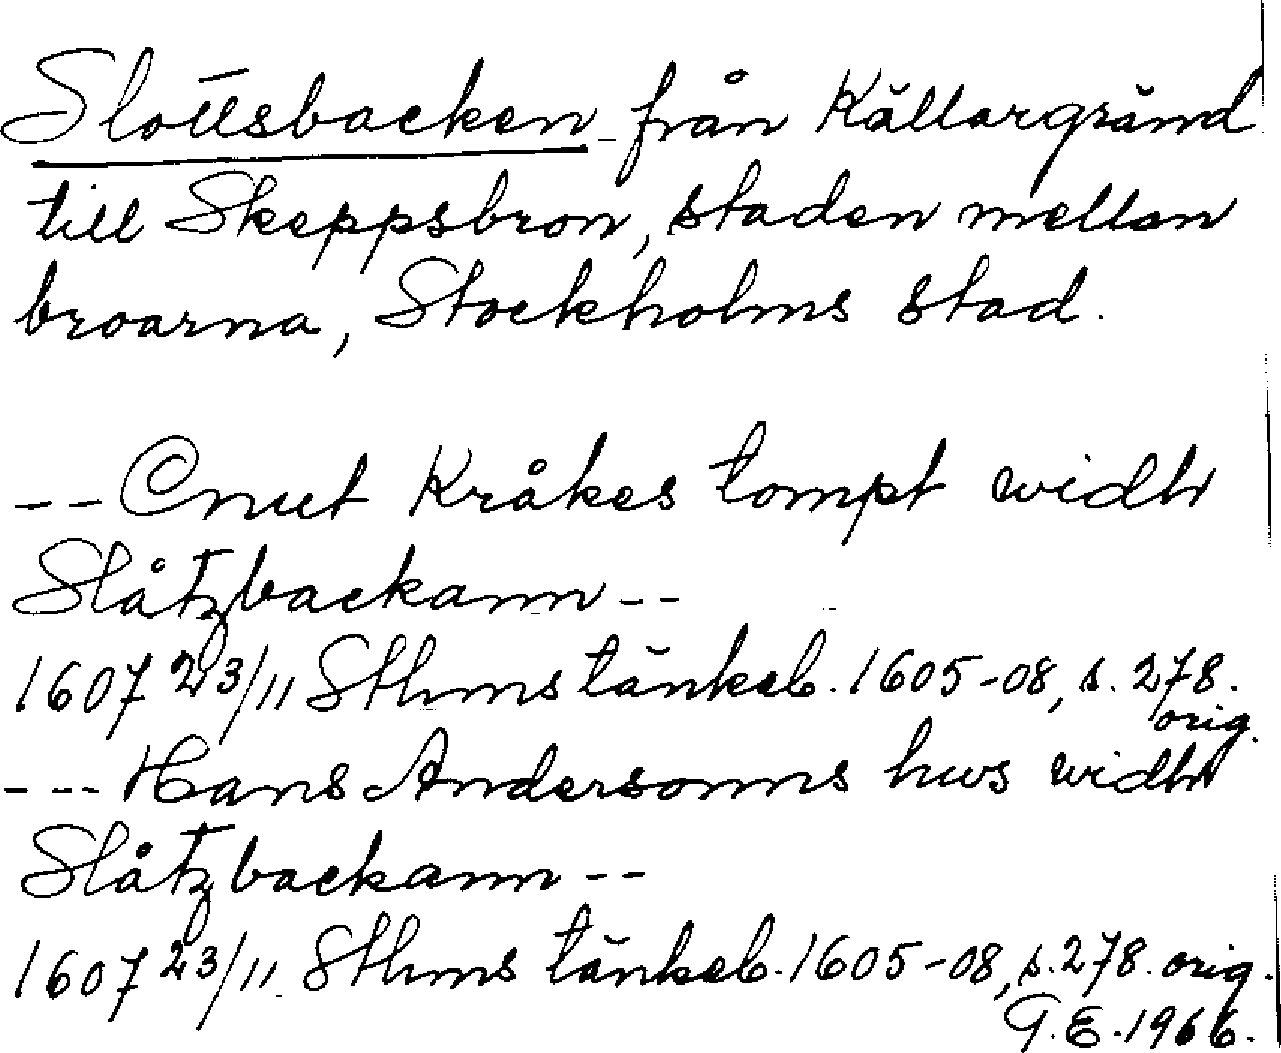 Slottsbacken från Källargränd
till Skeppsbron, staden mellan
broarna, Stockholms stad.
-- Cnut Kråkes tompt widh
Slåtzbackann --
1607 23/11 Sthms tänkeb. 1605-08, s. 278.
orig.
--- Hans Andersonns hws widh
Slåtzbackann --
1607 23/11 Sthms tänkeb. 1605-08, s. 278. orig.
G.E. 1966.